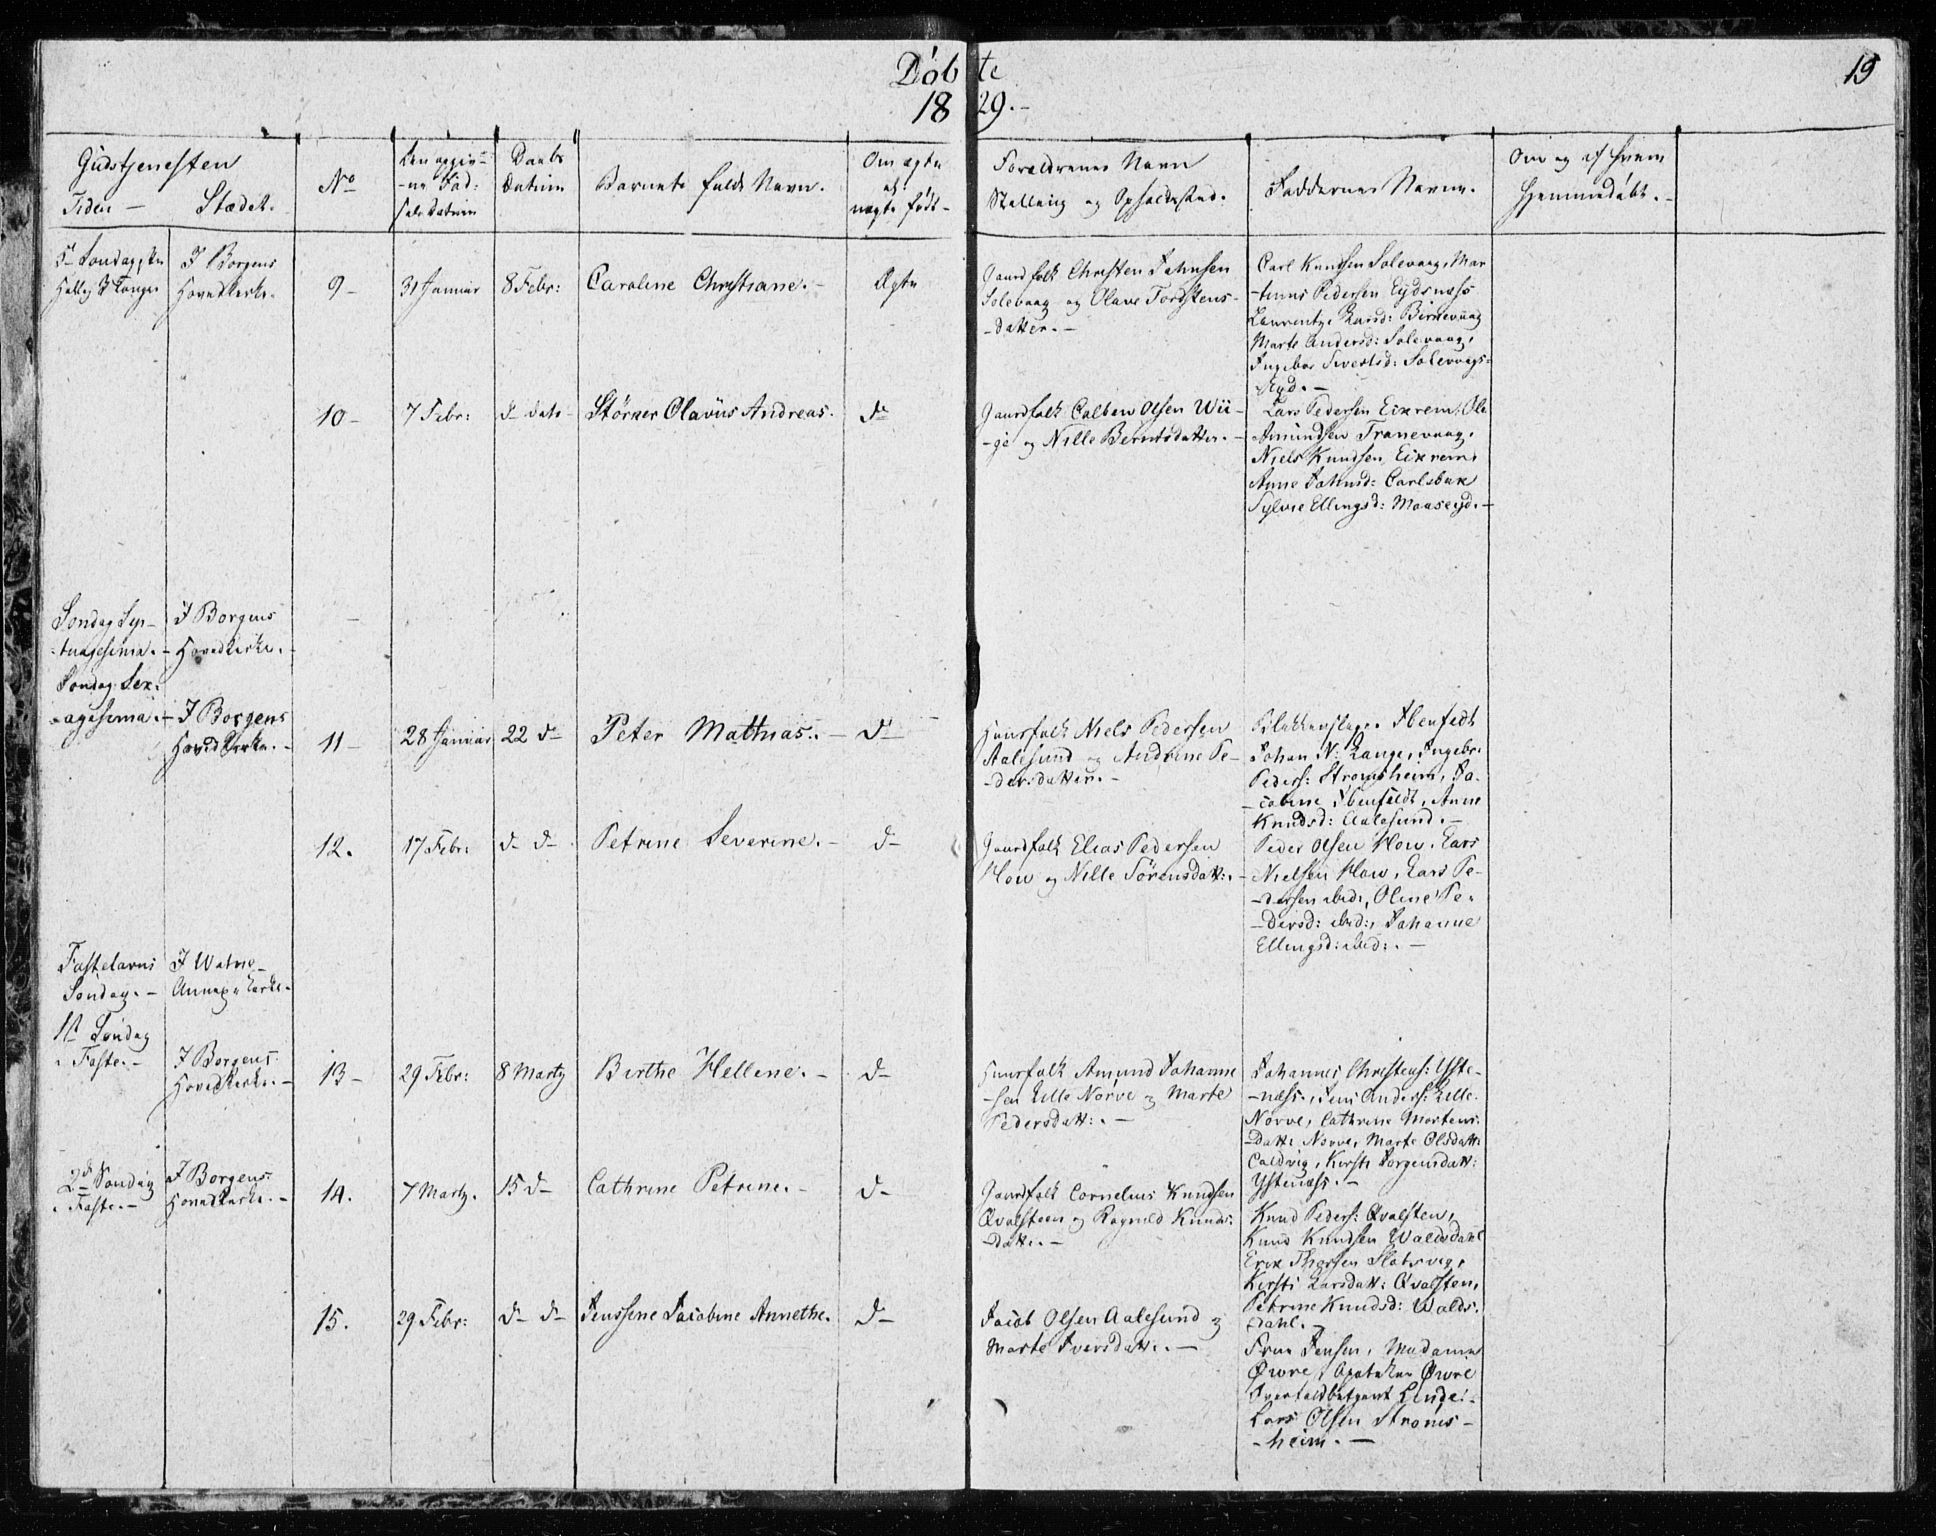 Döbte
1829.-
19
Gudstjenesten
Tiden - Stædet.
No
Den opgiv-
-ne Fød-
sels Datum
Daabs
Datum
Barnets fulde Navn.
Om ægte
el.
uægte født-
Forældrenes Navn
Stelling og Opholdsstæd.
Faddernes Navne.
Om og af hvem
hjemmedøbt.-
5te Søndag efter
Hellig 3 Konger
I Borgens
Hovedkirke.
9-
31 Januar
8 Febr:
Caroline Christiane.-
Ægte
Gaardfolk Christen Johnsen
Solevaag og Olave Tordstens-
-datter.-
Carl Knudsen Solevaag, Mar-
-tinus Pedersen Eydsnæs
Laurentze Larsd: Birnevaag
Marte Andersd: Solevaag,
Ingebor Sivertsd: Solevaags-
Eyd.-
10-
7 Febr:
d- dato-
Størker Olavus Andreas.
do
Gaardfolk Colben Olsen Wii-
-ge og Nille Berntsdatter.-
Lars Pedersen Eixrem, Ole
Amundsen Tranevaag,
Niels Knudsen Eixrem,
Anne Johnsd: Carlsbax
Sylvie Ellingsd: Maaseyd.-
Søndag Sep-
-tuagesima.-
I Borgens
Hovedkirke.
Søndag Sex-
-agesima.-
I Borgens
Hoved Kirke.-
11-
28 Januar
22 d-
Peter Mathias.-
d-
Huusfolk Niels Pedersen
Aalesund og Andrine Pe-
-dersdatter.-
Ibenfeldt
Johan N: Lange, Ingebr:
Peders: Strømsheim, Ja-
-cobine Ibenfeldt, Anne
Knudsd: Aalesund.-
12.
17 Febr:
d- d-
Petrine Severine.-
d-
Gaardfolk Elias Pedersen
How og Nille Sørensdatt:.-
Peder Olsen How, Lars
Nielsen How, Lars Pe-
-dersen ibid:, Oline Pe-
-dersd: ibid:, Johanne
Ellingsd: ibid:.-
Fastelavns
Søndag.-
I Watne
Annexe Kirke.
1ste Søndag
i Faste.-
I Borgens
Hovedkirke.-
13-
29 Febr:
8 Marty
Birthe Hellene.-
d-
Huusfolk Amund Johanne
-sen Lille Nørve og Marte
Pedersdatt:.-
Johannes Christens: Yste-
-næss, Jens Anders: Lille
Nørve, Cathrine Mortens-
-datt: Nørve, Marte Olsdatt:
Caldvig, Kirsti Jørgensdatt:
Ystenæss.-
2d Søndag
i Faste.-
I Borgens
Hovedkirke.-
14.
7 Marty.
15 d-
Cathrine Petrine.-
d-
Gaardfolk Cornelius Knudsen
Qvalsteen og Ragnild Knuds-
-datt:.-
Knud Peders: Qvalsten,
Knud Knudsen Waldsdahl
Erix Thorsen Slotsvig,
Kirsti Larsdatt: Qvalsten,
Petrine Knudsd: Walds-
-dahl.-
15.
29 Febr:
d- d-
Jenssine Jacobine Annethe.
d-
Jacob Olsen Aalesund og
Marte Iversdatt:.-
Frue Jensen, Madame
Øwre, Apoteker Øwre
Linge,
Lars Olsen Strøms-
-heim.-